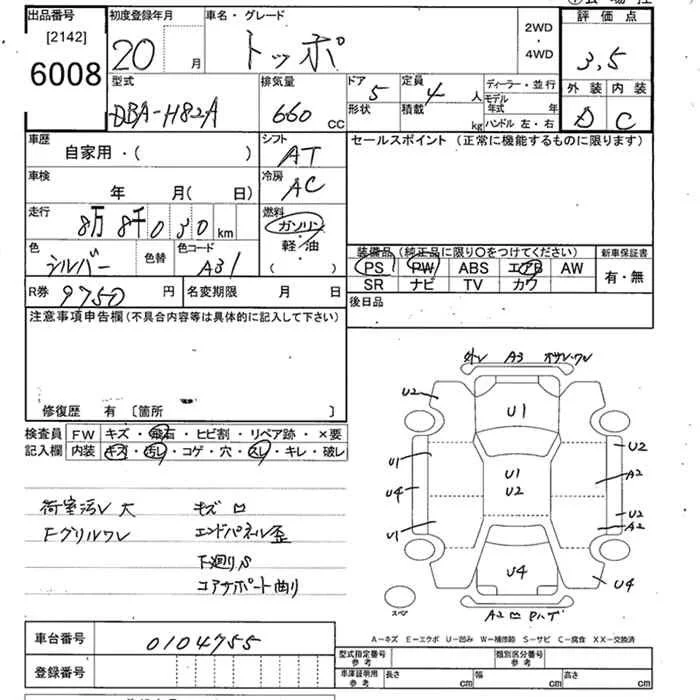 出品番号 初度登録年月 車名・グレード 評価点
[2142]
6008
20 月 トッポ 2WD・4WD 3,5
型式 排気量 ドア 5 定員 4 人 ディーラー・並行 外装 内装
DBA-H82A 660 CC 形状 積載 kg モデル年式 年 ハンドル 左・右 D C
車歴 シフト セールスポイント (正常に機能するものに限ります)
自家用・( ) AT
車検 冷房
年 月( 日) AC
走行 燃料
8万 8千 0 3 0 km ガソリン
色 色替 色コード 軽/油 装備品 (純正品に限り〇をつけてください) 新車保証書
シルバー A31 ( ) PS PW ABS エアB AW 有・無
R券 9750 円 名変期限 月 日 SR ナビ TV カワ
後日品
注意事項申告欄 (不具合内容等は具体的に記入して下さい)
修復歴 有 〔箇所 〕
検査員 FW キズ・飛石・ヒビ割・リペア跡・×要
記入欄 内装 キズ・汚レ・コゲ・穴・スレ・キレ・破レ
荷室汚レ 大 キズ
Fグリルワレ エンドパネル歪
下廻りS
コアサポート曲り
A3
U2 U1
U1 U1 U2
U4 U2 A2
U2
U1 A2
U4 U4
A2
スペア
A-キズ E-エクボ U-凹み W-補修跡 S-サビ C-腐食 XX-交換済
車台番号 0104755
型式指定番号 参考 類別区分番号 参考
登録番号 車庫証明用 参考 長さ cm 幅 cm 高さ cm